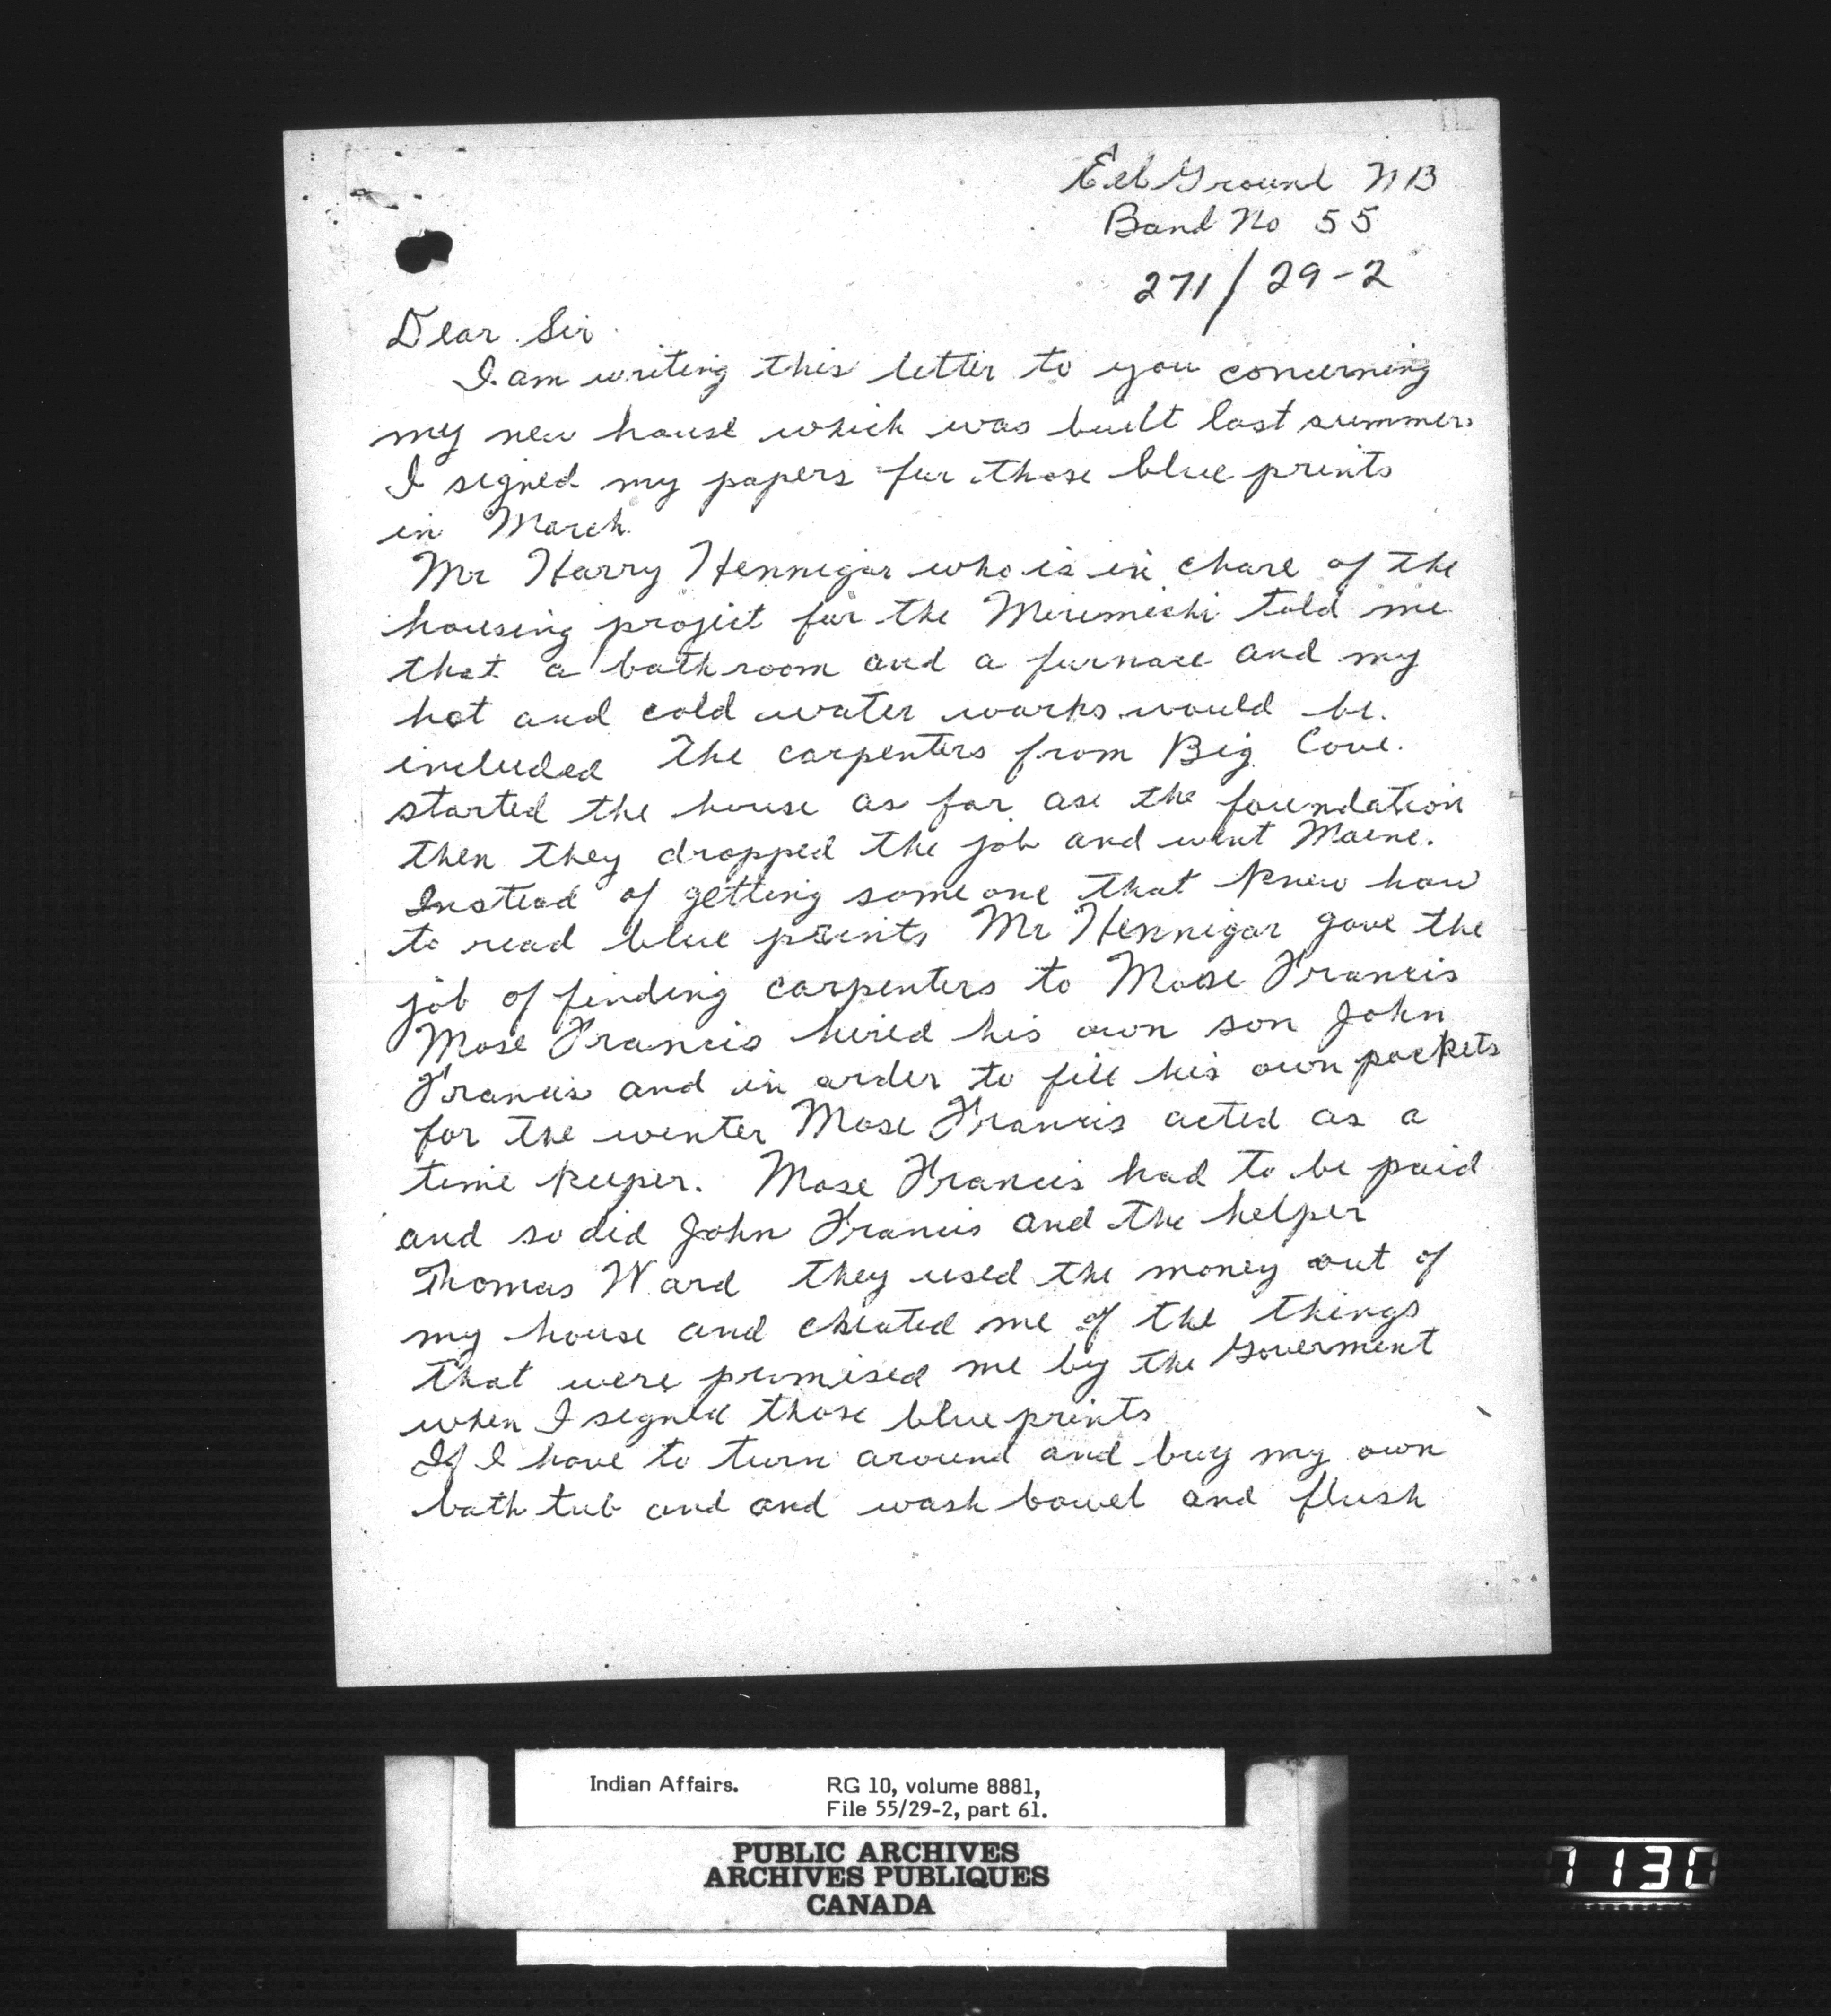 Eel Ground NB
Band No 55
271/29-2
Dear Sir
I am writing this letter to you concerning
my new house which was built last summer.
I signed my papers for those blue prints
in March
Mr Harry Hennigar who is in chare of the
housing project for the Miremichi told me
that a bathroom and a furnace and my
hot and cold water works would be.
included The carpenters from Big Cove.
started the house as far as the foundation
then they dropped the job and went Maine.
Instead of getting some one that knew how
to read blue prints Mr Hennigar gave the
job of finding carpenters to Mose Francis
Mose Francis hired his own son John
Francis and in order to fill his own pockets
for the winter Mose Francis acted as a
time keeper. Mose Francis had to be paid
and so did John Francis and the helper
Thomas Ward they used the money out of
my house and cheated me of the things
that were promised me by the Goverment
when I signed those blue prints
If I have to turn around and buy my own
bath tub and and wash bowel and flush
Indian Affairs. RG 10, volume 8881,
File 55/29-2, part 61.
PUBLIC ARCHIVES
ARCHIVES PUBLIQUES
CANADA
1130